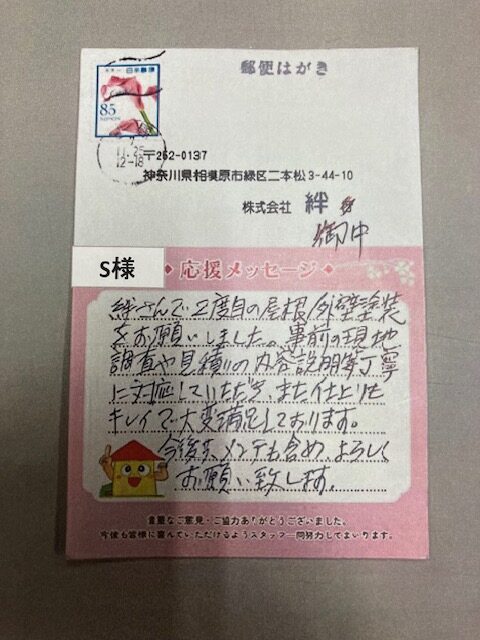 郵便はがき
日本郵便
85
NIPPON
11.25
12-18
〒252-0137
神奈川県相模原市緑区二本松3-44-10
株式会社 絆
御中
S様
応援メッセージ
絆さんで2度目の屋根/外壁塗装
をお願いしました。事前の現地
調査や見積りの内容説明等丁寧
に対応していただき、また仕上りも
キレイで大変満足しております。
今後共メンテも含め、よろしく
お願い致します。
貴重なご意見・ご協力ありがとうございました。
今後も皆様に喜んでいただけるようスタッフ一同努力してまいります。